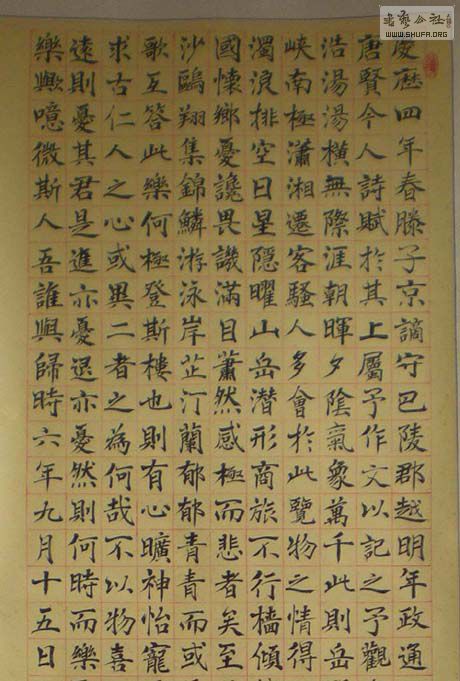 书艺公社
WWW.SHUFA.ORG
慶歷四年春滕子京謫守巴陵郡越明年政通
唐賢今人詩賦於其上屬予作文以記之予觀
浩湯湯橫無際涯朝暉夕陰氣象萬千此則岳
峽南極瀟湘遷客騷人多會於此覽物之情得
濁浪排空日星隱曜山岳潛形商旅不行檣傾
國懷鄉憂讒畏譏滿目蕭然感極而悲者矣至
沙鷗翔集錦鱗游泳岸芷汀蘭郁郁青青而或
歌互答此樂何極登斯樓也則有心曠神怡寵
求古仁人之心或異二者之為何哉不以物喜
遠則憂其君是進亦憂退亦憂然則何時而樂
樂歟噫微斯人吾誰與歸時六年九月十五日